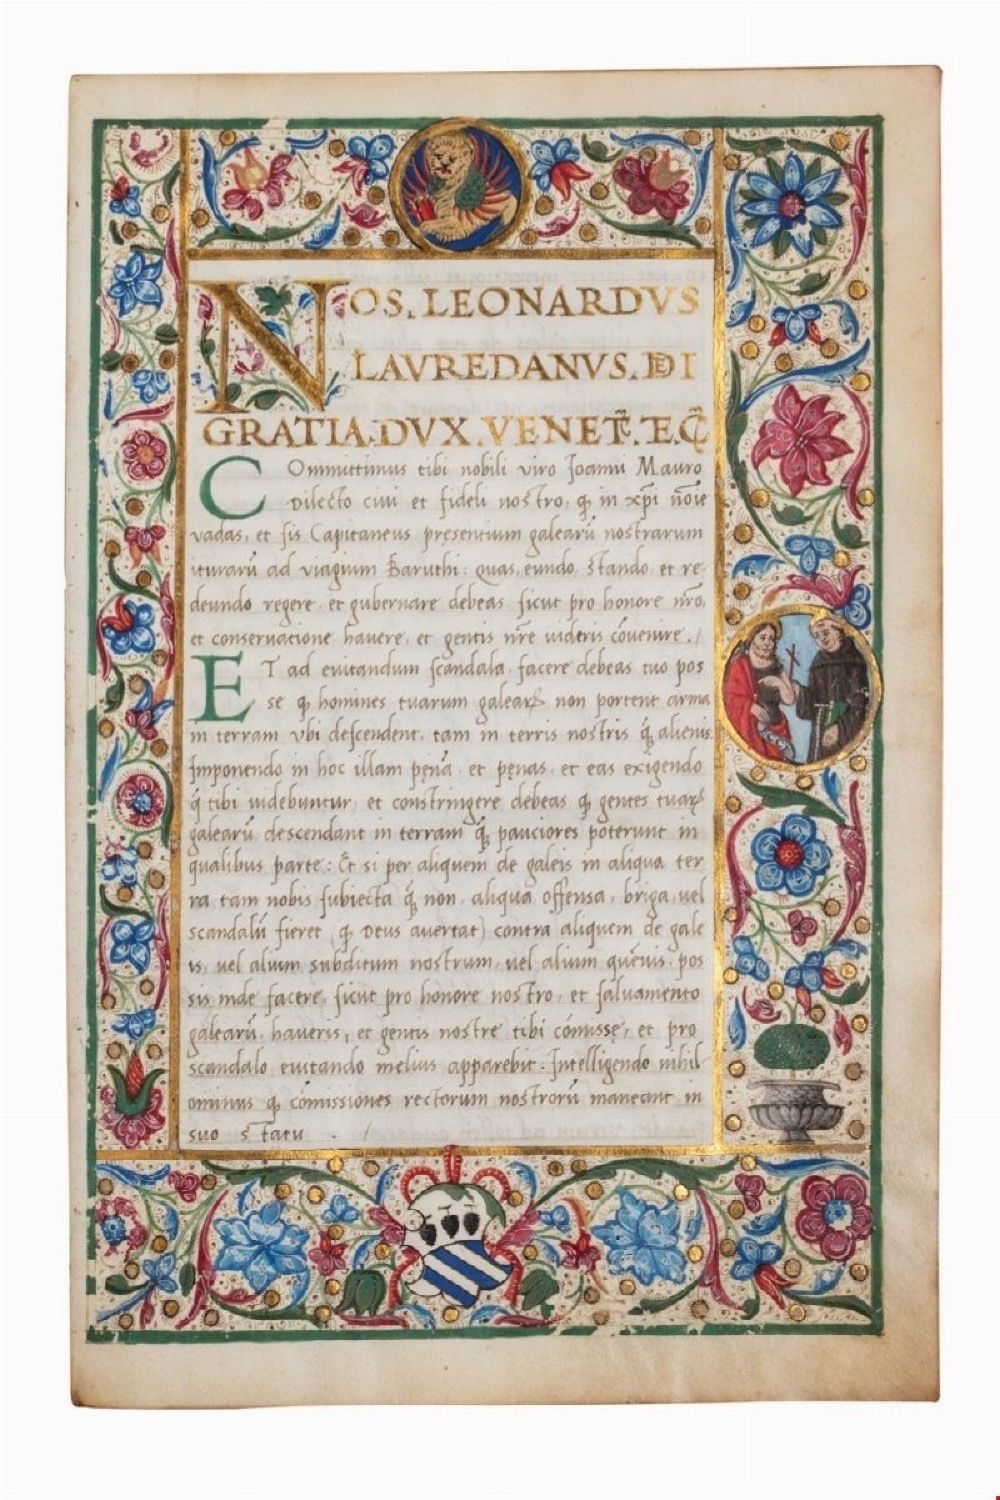 NOS. LEONARDVS
LAVREDANVS. DEI
GRATIA. DVX. VENET̃. E.C̃
COmmittimus tibi nobili viro Joanni Mauro
Dilecto ciui et fideli nostro, ꝙ in xp̃i nõie
vadas, et sis Capitaneus presentium galearũ nostrarum
iturarũ ad viagium Baruthi: quas, eundo, stando, et re
deundo regere, et gubernare debeas, sicut pro honore nr̃o,
et conseruatione hauere, et gentis nr̃e videris cõuenire. /
ET ad euitandum scandala, facere debeas tuo pos
se ꝙ homines tuarum galearꝝ non portent arma
in terram vbi descendent, tam in terris nostris q̃ alienis:
Imponendo in hoc illam penã, et penas, et eas exigendo
q̃ tibi uidebuntur, et constringere debeas ꝙ gentes tuarꝝ
galearũ descendant in terram q̃ pauciores poterunt in
qualibus parte: Et si per aliquem de galeis in aliqua ter
ra tam nobis subiecta q̃ non, aliqua offensa, briga, uel
scandalũ fieret (ꝙ Deus auertat) contra aliquem de gale
is, uel alium subditum nostrum, uel alium quẽuis, pos
sis inde facere, sicut pro honore nostro, et saluamento
galearũ, haueris, et gentis nostre tibi cõmisse, et pro
scandalo euitando melius apparebit. Intelligendo nihil
ominus ꝙ cõmissiones rectorum nostrorũ maneant in
suo statu . /